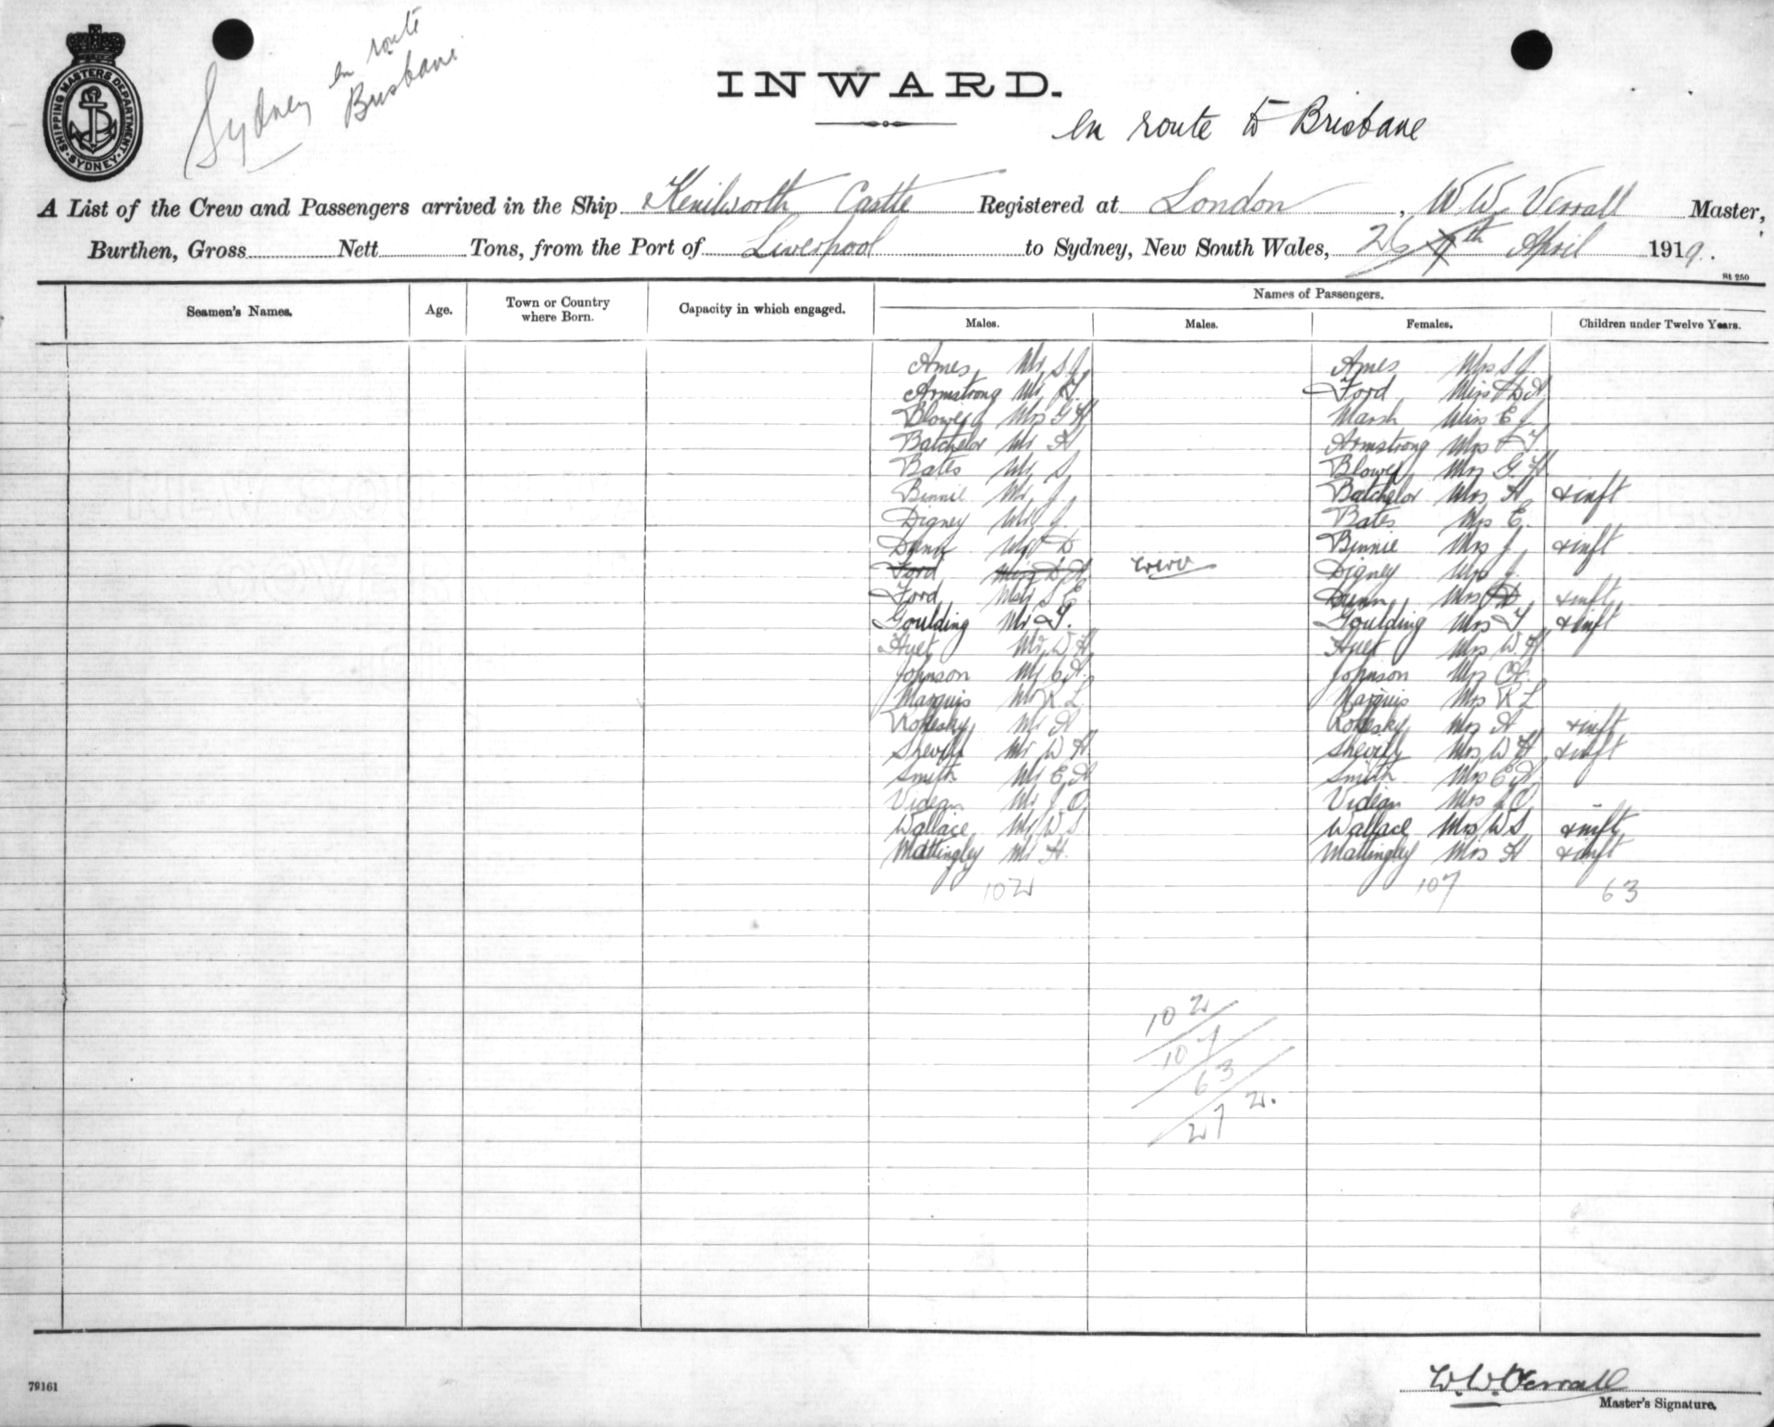 SHIPPING MASTERS DEPARTMENT · SYDNEY ·
Sydney en route
Brisbane
INWARD.
en route to Brisbane
A List of the Crew and Passengers arrived in the Ship Kenilworth Castle Registered at London, W W Verrall Master,
Burthen, Gross Nett Tons, from the Port of Liverpool to Sydney, New South Wales, 26 th April 1919.
St 250
Names of Passengers.
Seamen's Names. Age. Town or Country where Born. Capacity in which engaged. Males. Males. Females. Children under Twelve Years.
Ames Mr S J Ames Mrs S J
Armstrong Mr Ford Miss D A
Blowey Mr G H Marsh Miss E
Batchelor Mr A Armstrong Mrs
Bates Mr S Blowey Mrs G H
Binnie Mr J Batchelor Mrs A & inft
Digney Mr J Bates Mrs E.
Dunn Mr D Binnie Mrs J & inft
Ford Miss D A WWV Digney Mrs J
Ford Mr S E Dunn Mrs D & inft
Goulding Mr T. Goulding Mrs T & inft
Huet Mr W H Huet Mrs W H
Johnson Mr C A Johnson Mrs C A
Marquis Mr R L Marquis Mrs R L
Mr A Mrs A & inft
Mr W H Mrs W H & inft
Smith Mr E A Smith Mrs E A
Videan Mr J O Videan Mrs J O
Wallace Mr W S Wallace Mrs W S & inft
Mattingley Mr H. Mattingley Mrs H & inft
102 107 63
102
107
63
272.
W. W. Verrall
Master's Signature.
79161